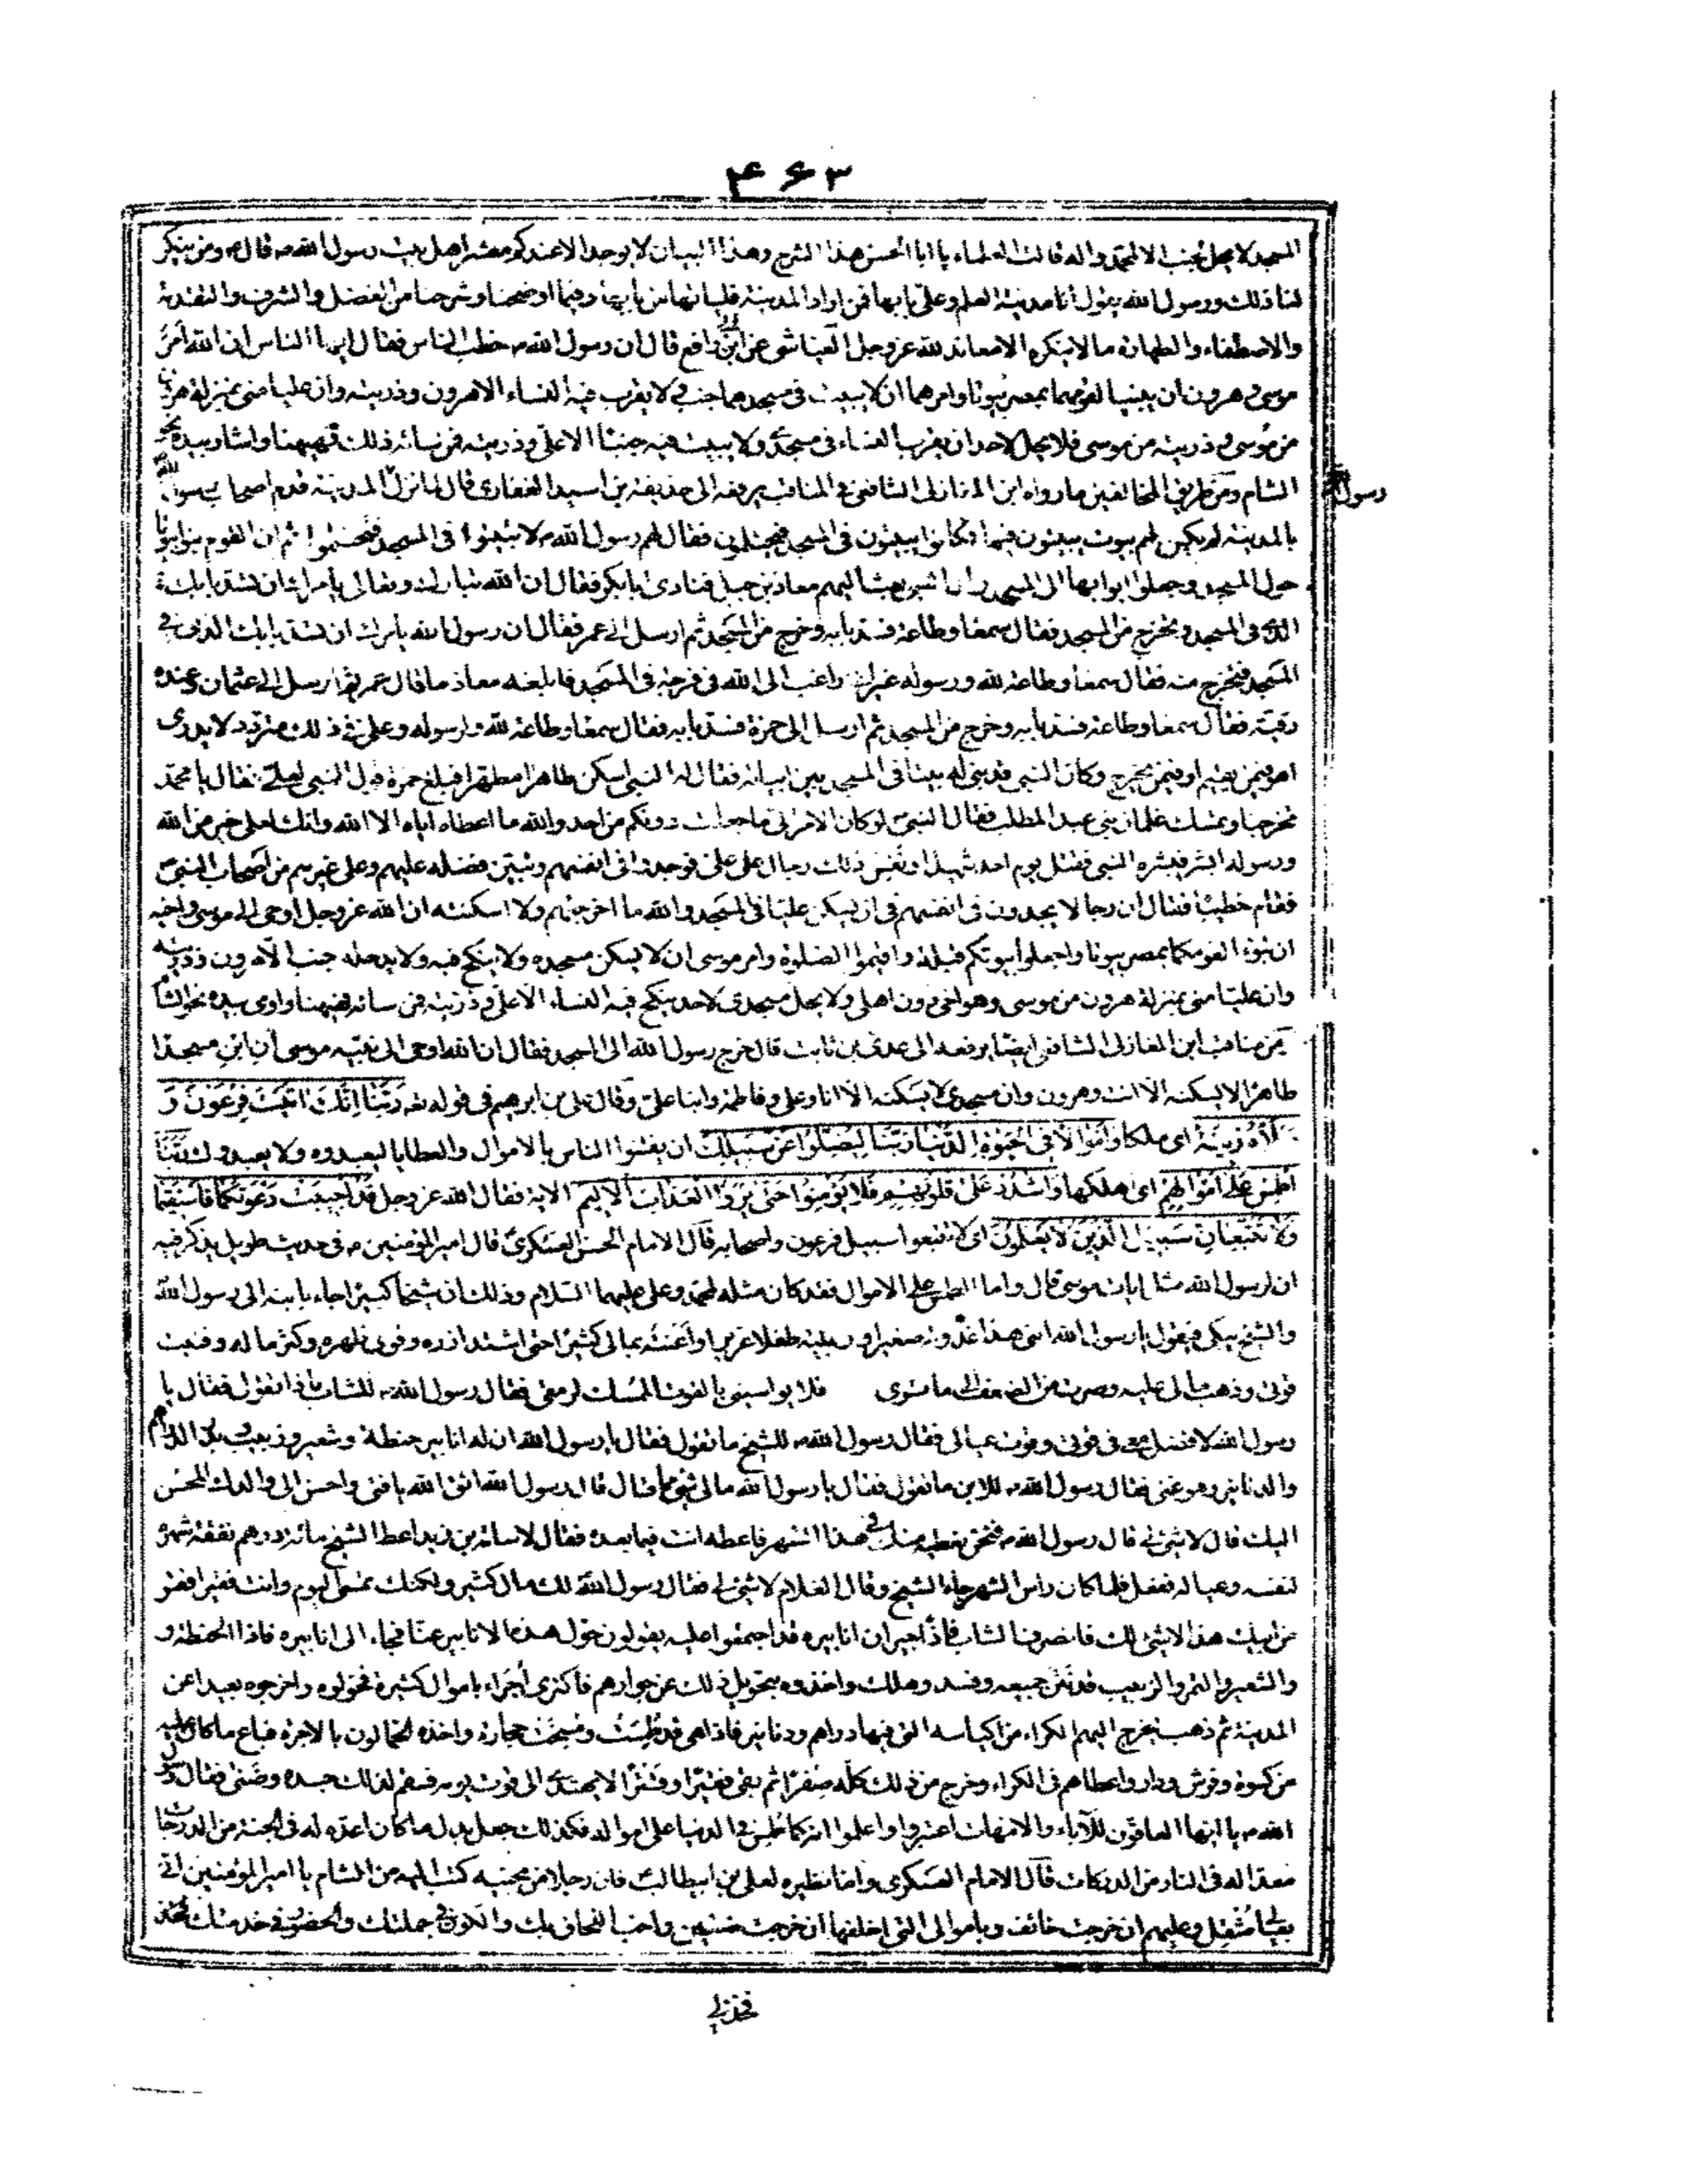 ۴۶۳
المسجد لا يحل لجنب الا لمحمد واله قالت العلماء يا ابا الحسن هذا الشرح وهذا البيان لا يوجد الا عندكم معشر اهل بيت رسول الله ص قال ومن ينكر
لنا ذلك ورسول الله يقول انا مدينة العلم وعلى بابها فمن اراد المدينة فلياتها من بابها وفيما اوضحنا وشرحنا من الفضل والشرف والتقدمة
والاصطفاء والطهارة ما لا ينكره الا معاند لله عز وجل العياشى عن ابى رافع قال ان رسول الله ص خطب الناس فقال ايها الناس ان الله امر
موسى وهرون ان يبنيا لقومهما بمصر بيوتا وامرهما ان لا يبيت فى مسجدهما جنب ولا يقرب فيه النساء الا هرون وذريته وان عليا منى بمنزلة هرون
من موسى وذريته من موسى فلا يحل لاحد ان يقرب النساء فى مسجدى ولا يبيت فيه جنبا الا على وذريته فمن سائه ذلك فههنا واشار بيده نحو
الشام ومن طريق المخالفين ما رواه ابن المغازلى الشافعى فى المناقب يرفعه الى حذيفة بن اسيد الغفارى قال لما نزل المدينة قدم اصحاب رسول الله
رسول
بالمدينة لم يكن لهم بيوت يبيتون فيها فكانوا يبيتون فى المسجد فيحتلمون فقال لهم رسول الله ص لا تبيتوا فى المسجد فتحتلموا ثم ان القوم بنوا بيوتا
حول المسجد وجعلوا ابوابها الى المسجد وان النبى بعث اليهم معاذ بن جبل فنادى ابا بكر فقال ان الله تبارك وتعالى يامرك ان تسد بابك
الذى فى المسجد وتخرج من المسجد فقال سمعا وطاعة فسد بابه وخرج من المسجد ثم ارسل الى عمر فقال ان رسول الله يامرك ان تسد بابك الذى فى
المسجد فتخرج منه فقال سمعا وطاعة لله ورسوله غير انى راغب الى الله فى فرجة فى المسجد فابلغه معاذ ما قال عمر ثم ارسل الى عثمان وعنده
رقية فقال سمعا وطاعة فسد بابه وخرج من المسجد ثم ارسل الى حمزة فسد بابه فقال سمعا وطاعة لله ولرسوله وعلى فى ذلك متردد لا يدرى
اهو فيمن يقيم او فيمن يخرج وكان النبى قد بنى له بيتا فى المسجد بين ابياته فقال له النبى اسكن طاهرا مطهرا فبلغ حمزة قول النبى لعلى فقال يا محمد
تخرجنا وتمسك غلمان بنى عبد المطلب فقال النبى لو كان الامر لى ما جعلت دونكم من احد والله ما اعطاه اياه الا الله وانك لعلى خير من الله
ورسوله ابشر فبشره النبى فقتل يوم احد شهيدا ونفس ذلك رجال على على فوجدوا فى انفسهم وتبين فضله عليهم وعلى غيرهم من اصحاب النبى
فقام خطيبا فقال ان رجالا يجدون فى انفسهم فى ان يسكن عليا فى المسجد والله ما اخرجتهم ولا اسكنته ان الله عز وجل اوحى الى موسى واخيه
ان تبوءا لقومكما بمصر بيوتا واجعلوا بيوتكم قبلة واقيموا الصلوة وامر موسى ان لا يسكن مسجده ولا ينكح فيه ولا يدخله جنب الا هرون وذريته
وان عليا منى بمنزلة هرون من موسى وهو اخى دون اهلى ولا يحل مسجدى لاحد ينكح فيه النساء الا على وذريته فمن سائه فههنا واومى بيده نحو الشام
من مناقب ابن المغازلى الشافعى ايضا يرفعه الى عدى بن ثابت قال خرج رسول الله الى المسجد فقال ان الله اوحى الى نبيه موسى ان ابن مسجدا
طاهرا لا يسكنه الا انت وهرون وان مسجدى لا يسكنه الا انا وعلى وفاطمة وابنا على وقال على بن ابرهيم فى قوله تعه ربنا انك اتيت فرعون و
ملاه زينة اى ملكا واموالا فى الحيوة الدنيا ربنا ليضلوا عن سبيلك ان يفتنوا الناس بالاموال والعطايا ليعبدوه ولا يعبدوك ربنا
اطمس على اموالهم اى اهلكها واشدد على قلوبهم فلا يؤمنوا حتى يروا العذاب الاليم الاية فقال الله عز وجل قد اجيبت دعوتكما فاستقيما
ولا تتبعان سبيل الذين لا يعلمون اى لا تتبعوا سبيل فرعون واصحابه قال الامام الحسن العسكرى قال امير المؤمنين ع فى حديث طويل يذكر فيه
ان لرسول الله مثل ايات موسى قال واما الطمس على الاموال فقد كان مثله لمحمد وعلى عليهما السلام وذلك ان شيخا كبيرا جاء بابنه الى رسول الله
والشيخ يبكى فيقول يا رسول الله ابنى هذا غذوته صغيرا وربيته طفلا عزيزا واعنته بمالى كثيرا حتى اشتد ازره وقوى ظهره وكثر ماله وفنيت
قوتى وذهب مالى عليه وصرت من الضعف الى ما ترى فلا يواسينى بالقوت الممسك لرمقى فقال رسول الله ص للشاب ماذا تقول فقال يا
رسول الله لا فضل معى فى قوتى وقوت عيالى فقال رسول الله ص للشيخ ما تقول فقال يا رسول الله ان له انابير حنطة وشعير وزبيب وبدر الدراهم
والدنانير وهو غنى فقال رسول الله ص للابن ما تقول فقال يا رسول الله مالى شئ مما قال قال رسول الله اتق الله يا فتى واحسن الى والدك المحسن
اليك قال لا شئ لى قال رسول الله ص فنحن نعطيه عنك فى هذا الشهر فاعطه انت فيما بعده فقال لاسامة بن زيد اعط الشيخ مائة درهم نفقة شهر
لنفسه وعياله ففعل فلما كان راس الشهر جاء الشيخ وقال الغلام لا شئ لى فقال رسول الله لك مال كثير ولكنك تمسى اليوم وانت فقير افقر
من ابيك هذا لا شئ لك فانصرف الشاب فاذا جيران انابيره قد اجتمعوا عليه يقولون حول هذه الانابير عنا فجاء الى انابيره فاذا الحنطة و
والشعير والتمر والزبيب قد نتن جميعه وفسد وهلك واخذوه بتحويل ذلك عن جوارهم فاكترى اجراء باموال كثيرة فحولوه واخرجوه بعيدا عن
المدينة ثم ذهب يخرج اليهم الكراء من اكياسه التى فيها دراهم ودنانير فاذا هى قد طمست ومسخت حجارة واخذه الحمالون بالاجرة فباع ما كان عليه
من كسوة وفرش ودار واعطاهم فى الكراء وخرج من ذلك كله صفرا ثم بقى فقيرا وقترا لا يهتدى الى قوت يومه فسقم لذلك جسده وضنى فقال رسول
الله ص يا ايها العاقون للآباء والامهات اعتبروا واعلموا انه كما طمس فى الدنيا على امواله فكذلك جعل بدل ما كان اعد له فى الجنة من الدرجات
معدا له فى النار من الدركات قال الامام العسكرى واما نظيره لعلى بن ابيطالب فان رجلا من محبيه كتب اليه من الشام يا امير المؤمنين انى
بعيالى مثقل وعليهم ان خرجت خائف وباموالى التى اخلفها ان خرجت ضنين واحب اللحاق بك والكون فى جملتك والحضور فى خدمتك فجد
فخذلى